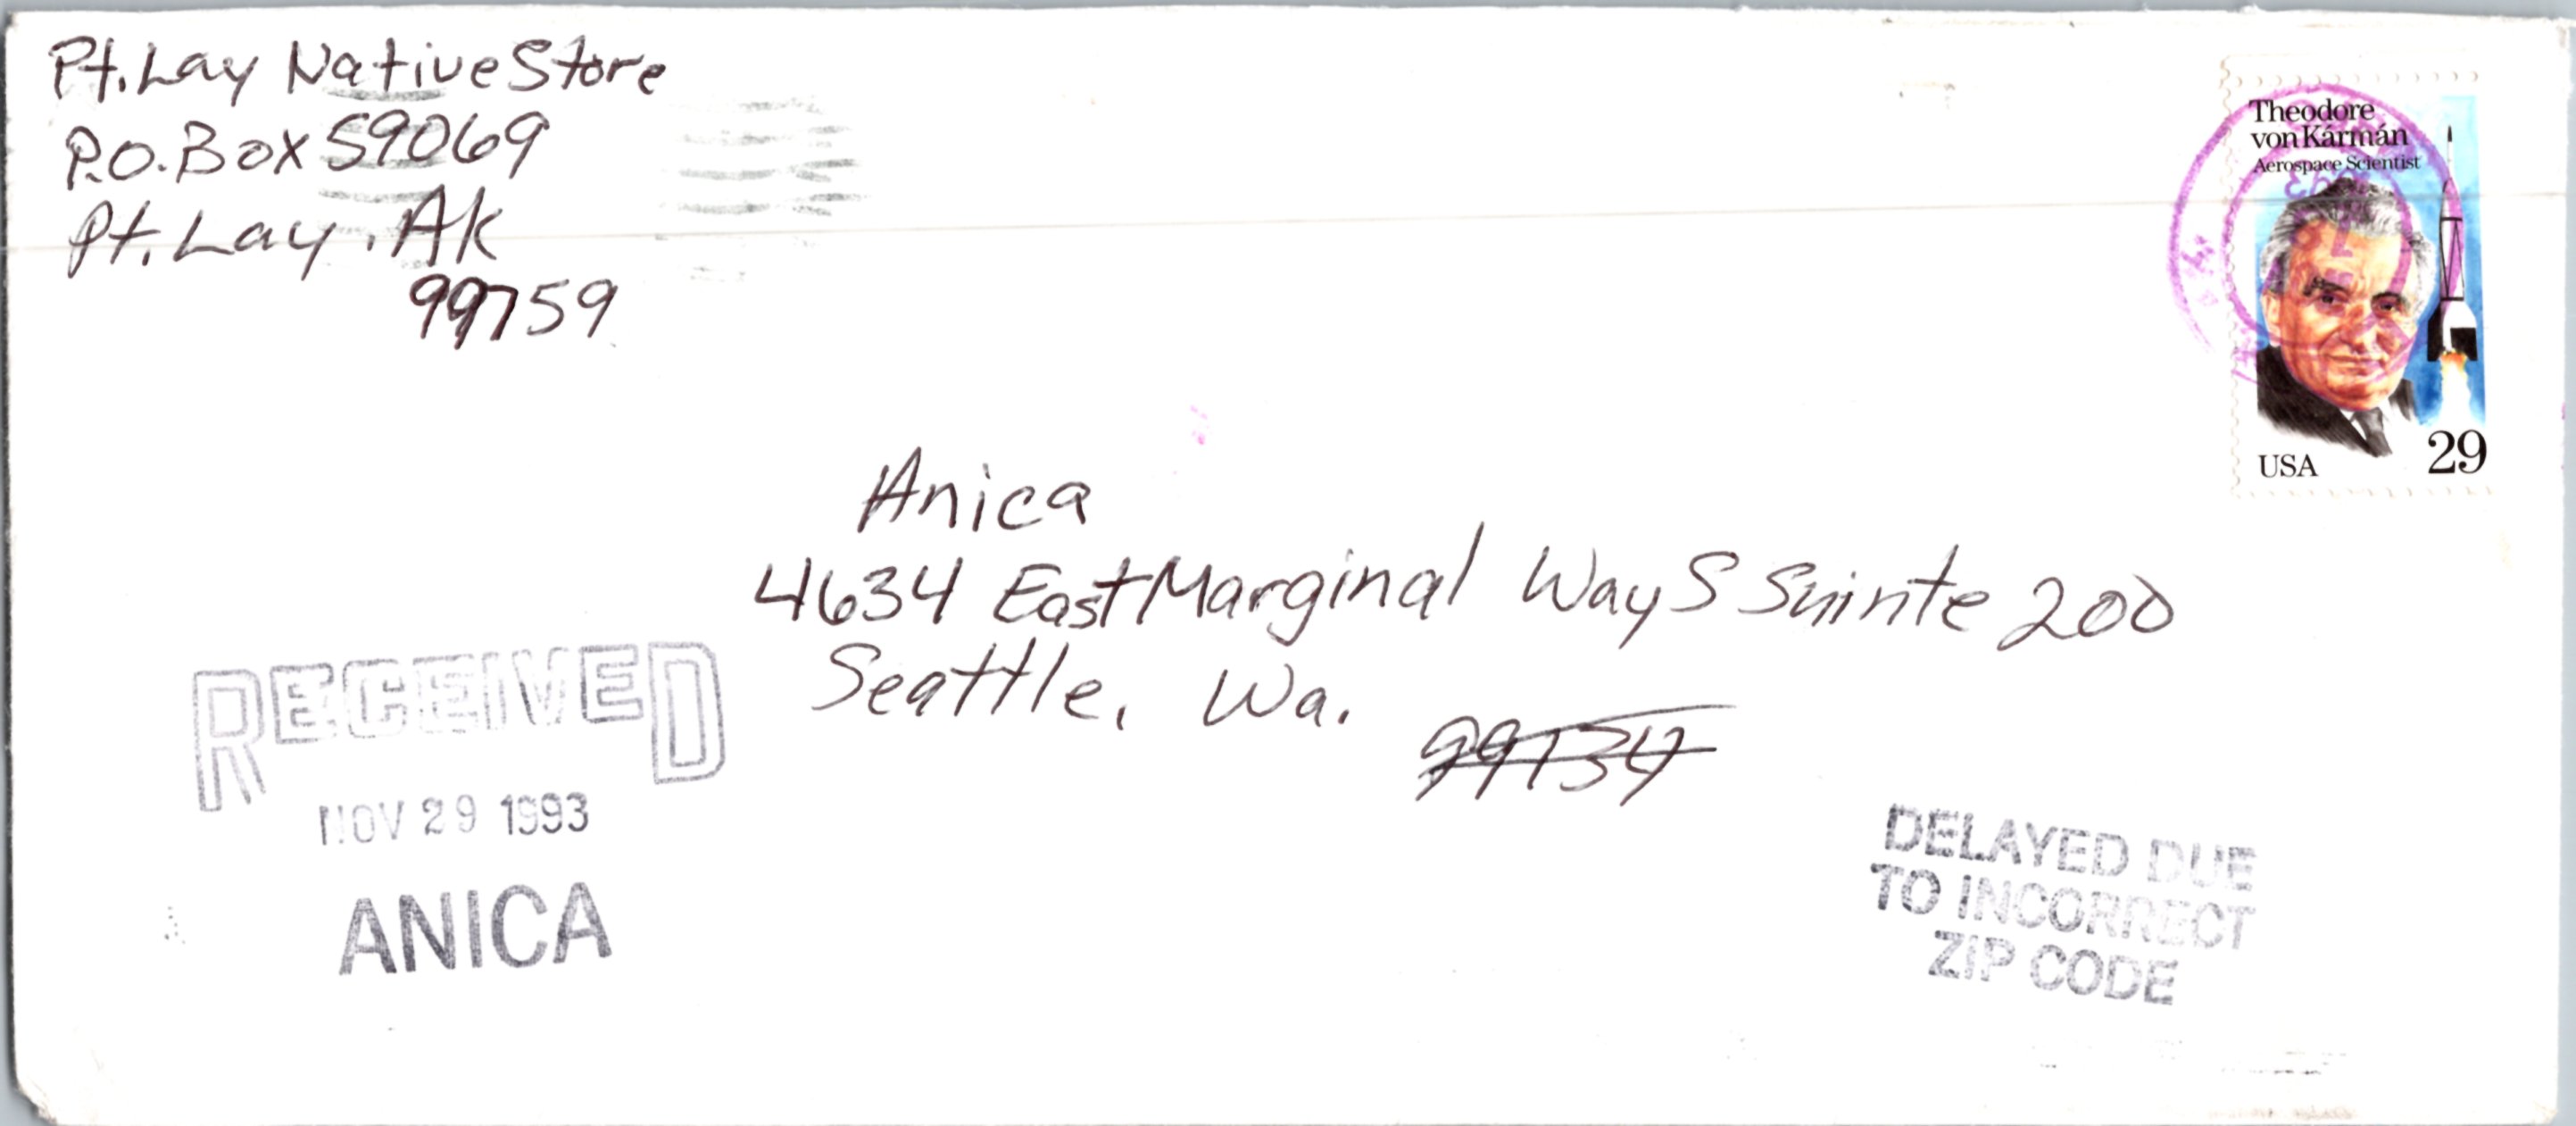 Pt. Lay Native Store
P.O. Box 59069
Pt. Lay, Ak
99759
Theodore
von Kármán
Aerospace Scientist
USA 29
Anica
4634 East Marginal Way S Suinte 200
Seattle, Wa.
99134
RECEIVED
NOV 29 1993
ANICA
DELAYED DUE
TO INCORRECT
ZIP CODE